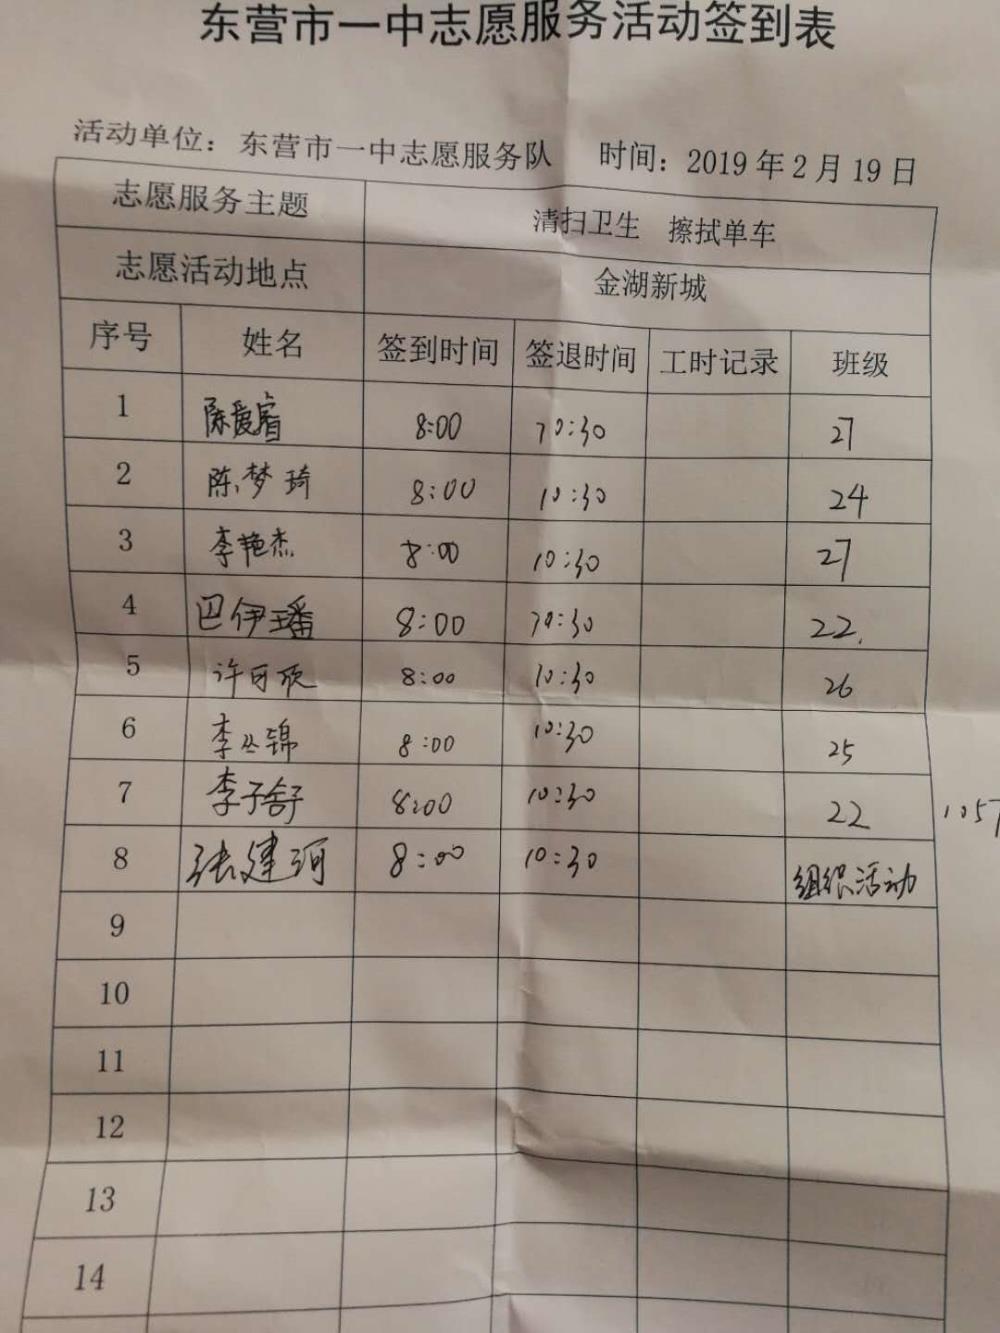 东营市一中志愿服务活动签到表
活动单位：东营市一中志愿服务队 时间：2019年2月19日
志愿服务主题 清扫卫生 擦拭单车
志愿活动地点 金湖新城
序号 姓名 签到时间 签退时间 工时记录 班级
1 陈爱睿 8:00 10:30 27
2 陈梦琦 8:00 10:30 24
3 李艳杰 8:00 10:30 27
4 巴伊璠 8:00 10:30 22
5 许可欣 8:00 10:30 26
6 李丛锦 8:00 10:30 25
7 李子舒 8:00 10:30 22 1057
8 张建河 8:00 10:30 组织活动
9
10
11
12
13
14